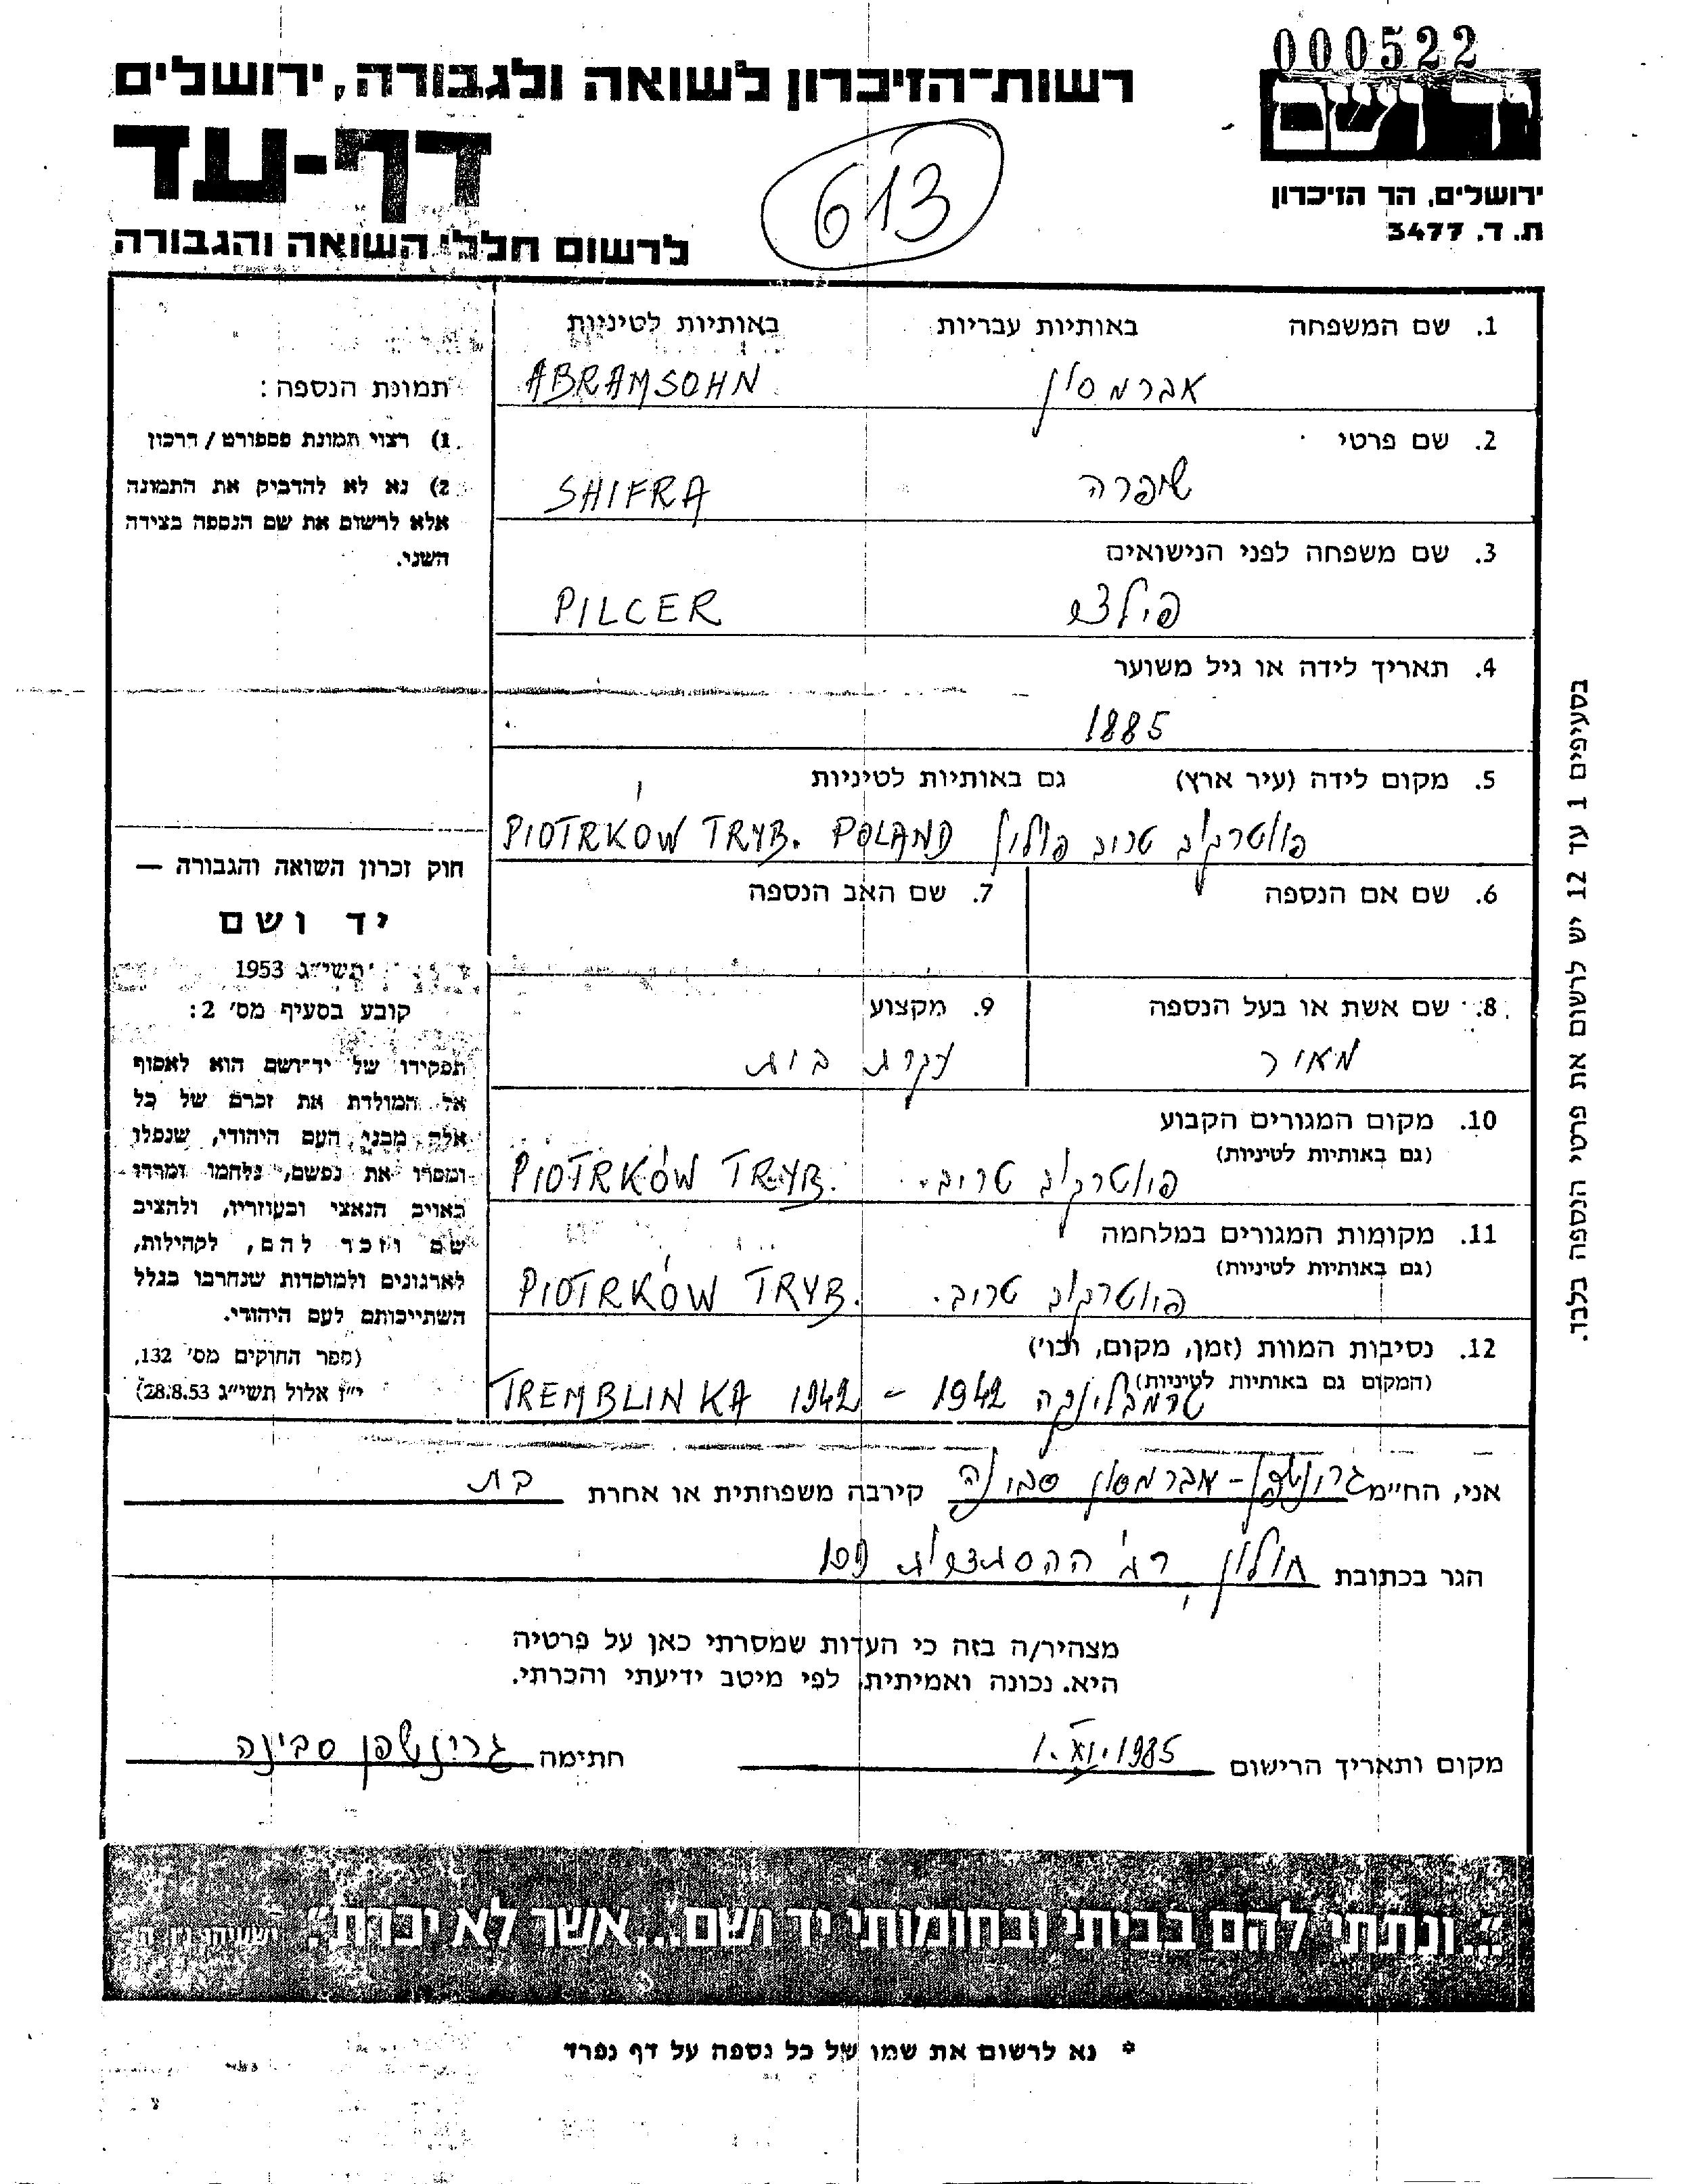 000522
רשות-הזיכרון לשואה ולגבורה, ירושלים
יד ושם
דף-עד
613
ירושלים, הר הזיכרון
ת. ד. 3477
לרשום חללי השואה והגבורה
1. שם המשפחה באותיות עבריות באותיות לטיניות
אברמסון ABRAMSOHN
2. שם פרטי
שפרה SHIFRA
3. שם משפחה לפני הנישואים
פילצר PILCER
4. תאריך לידה או גיל משוער
1885
5. מקום לידה (עיר ארץ) גם באותיות לטיניות
פיוטרקוב טריב פולין PIOTRKÓW TRYB. POLAND
6. שם אם הנספה 7. שם האב הנספה
8. שם אשת או בעל הנספה 9. מקצוע
מאיר עקרת בית
10. מקום המגורים הקבוע
(גם באותיות לטיניות)
פיוטרקוב טריב. PIOTRKÓW TRYB.
11. מקומות המגורים במלחמה
(גם באותיות לטיניות)
פיוטרקוב טריב. PIOTRKÓW TRYB.
12. נסיבות המוות (זמן, מקום, וכו')
(המקום גם באותיות לטיניות)
טרמבלינקה 1942 - TREMBLINKA 1942
תמונת הנספה:
1) רצוי תמונת פספורט / דרכון
2) נא לא להדביק את התמונה
אלא לרשום את שם הנספה בצידה
השני.
חוק זכרון השואה והגבורה —
יד ושם
תשי״ג 1953
קובע בסעיף מס׳ 2:
תפקידו של יד־ושם הוא לאסוף
אל המולדת את זכרם של כל
אלה מבני העם היהודי, שנפלו
ומסרו את נפשם, נלחמו ומרדו
באויב הנאצי ובעוזריו, ולהציב
שם וזכר להם, לקהילות,
לארגונים ולמוסדות שנחרבו בגלל
השתייכותם לעם היהודי.
(ספר החוקים מס׳ 132,
י״ז אלול תשי״ג 28.8.53)
בסעיפים 1 עד 12 יש לרשום את פרטי הנספה בלבד.
אני, הח״מ גרינשפן-אברמסון סבינה קירבה משפחתית או אחרת בת
הגר בכתובת חולון, רח' ההסתדרות 109
מצהיר/ה בזה כי העדות שמסרתי כאן על פרטיה
היא נכונה ואמיתית, לפי מיטב ידיעתי והכרתי.
מקום ותאריך הרישום 1.XI.1985 חתימה גרינשפן סבינה
״...ונתתי להם בביתי ובחומותי יד ושם...אשר לא יכרת״. ישעיהו נ״ו ה׳
* נא לרשום את שמו של כל נספה על דף נפרד